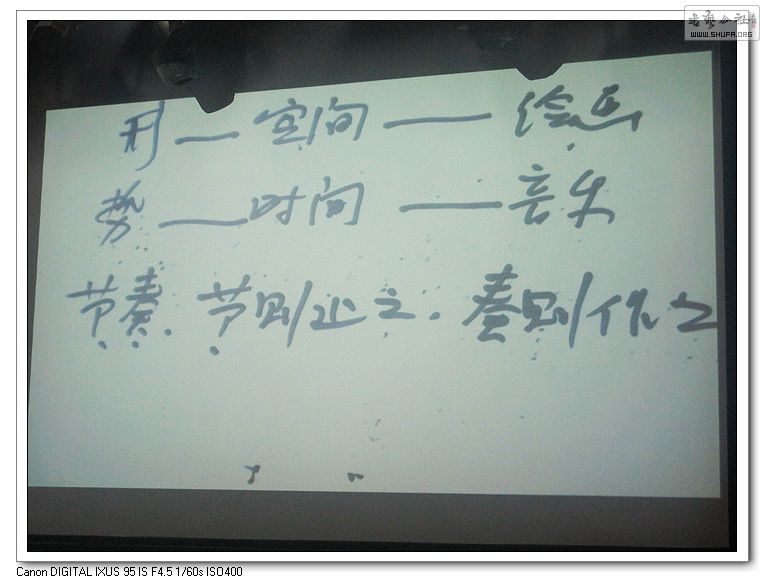 书艺公社
WWW.SHUFA.ORG
形——空间——绘画
势——时间——音乐
节奏.节则止之.奏则作之
Canon DIGITAL IXUS 95 IS F4.5 1/60s ISO400